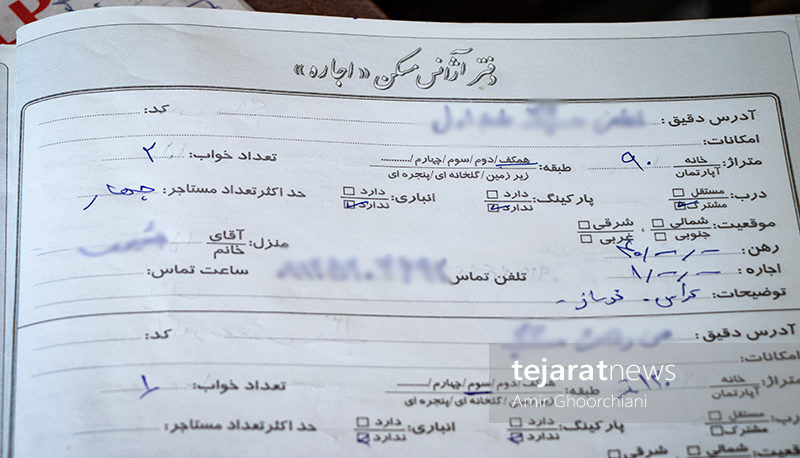 دفتر آژانس مسکن «اجاره»
آدرس دقیق: کد:
امکانات:
متراژ: خانه / آپارتمان ۹۰ طبقه: همکف/دوم/سوم/چهارم/......... زیر زمین/گلخانه ای/پنجره ای تعداد خواب: ۲
درب: مستقل مشترک پارکینگ: دارد ندارد انباری: دارد ندارد حداکثر تعداد مستاجر: چهار
موقعیت: شمالی جنوبی، شرقی غربی منزل: آقای خانم
رهن: ۴۰/-/-
اجاره: ۱/-/- تلفن تماس ساعت تماس:
توضیحات:
آدرس دقیق: کد:
امکانات:
متراژ: خانه / آپارتمان طبقه: همکف/دوم/سوم/چهارم/......... زیرزمین/گلخانه ای/پنجره ای تعداد خواب: ۱
درب: مستقل مشترک پارکینگ: دارد ندارد انباری: دارد ندارد حداکثر تعداد مستاجر:
موقعیت: شمالی شرقی
tejaratnews
Amir Ghoorchiani